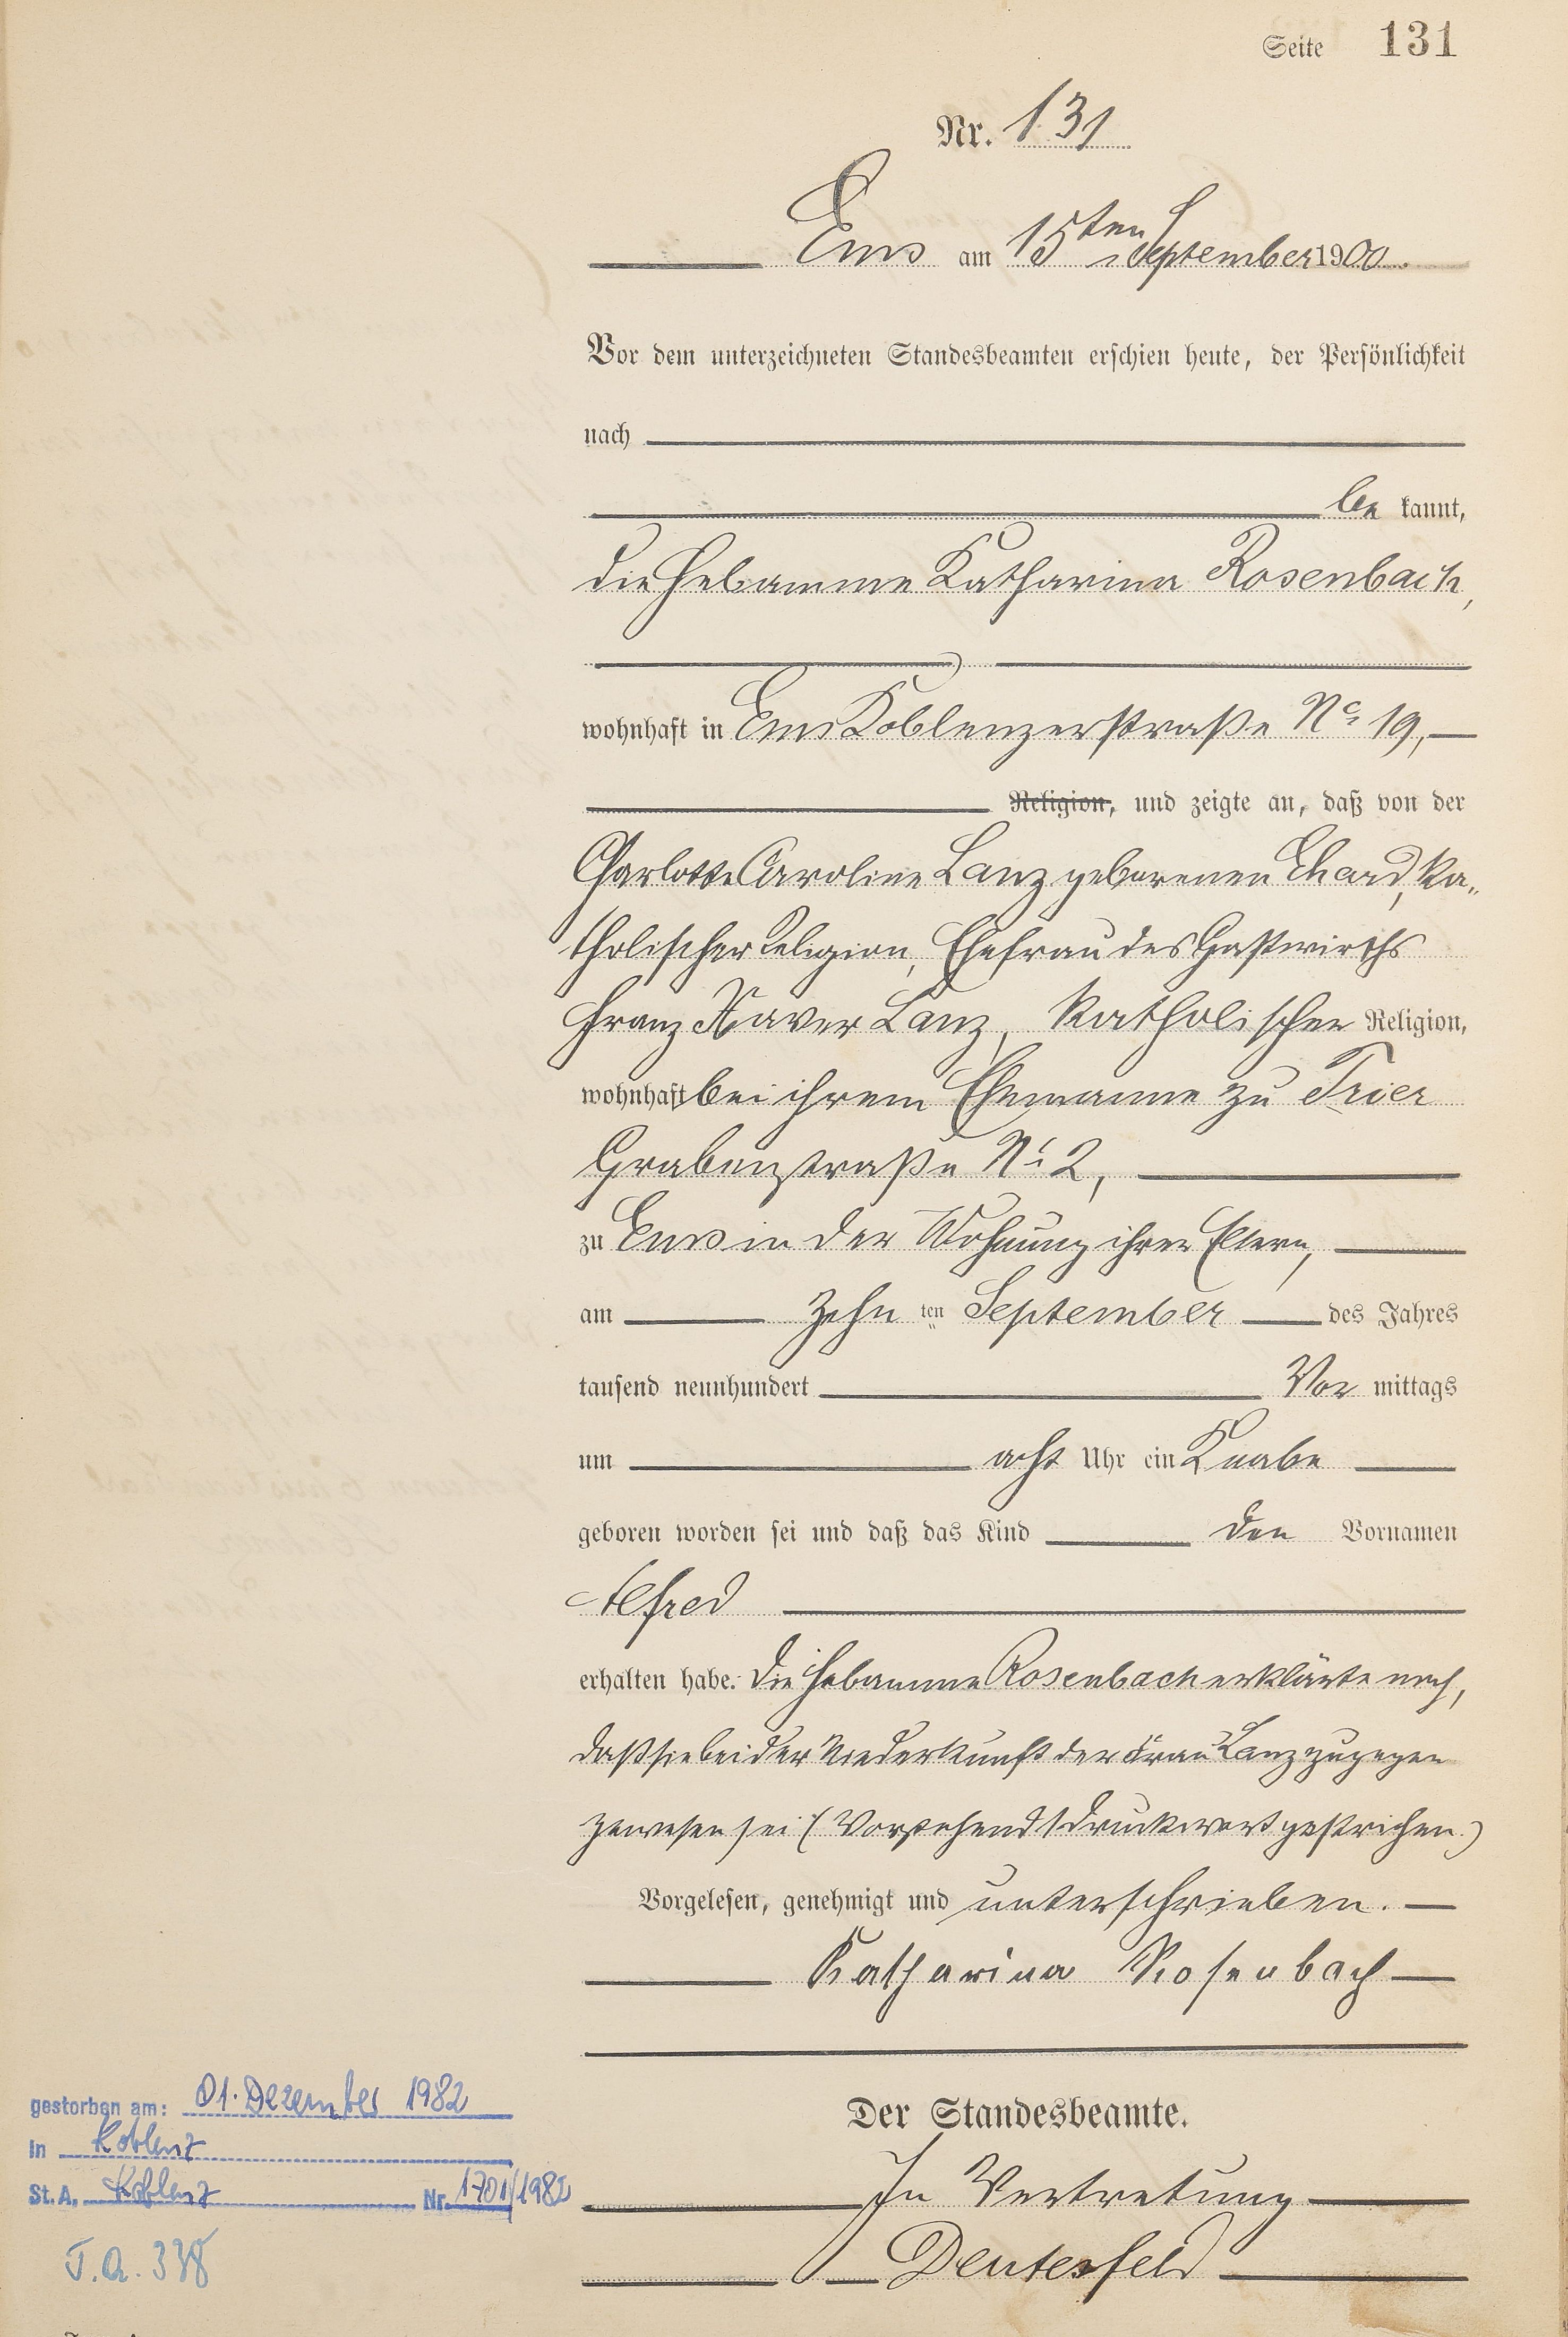 Seite 131
Nr. 131
Ems am 15ten September 1900.
Vor dem unterzeichneten Standesbeamten erschien heute, der Persönlichkeit
nach
be kannt,
die Hebamme Katharina Rosenbach,
wohnhaft in Ems Koblenzerstraße No 19,
Religion, und zeigte an, daß von der
Charlotte Caroline Lanz geborenen Ehard, ka-
tholischer Religion, Ehefrau des Gastwirths
Franz Xaver Lanz, katholischer Religion,
wohnhaft bei ihrem Ehemanne zu Trier
Grabenstraße No 2,
zu Ems in der Wohnung ihrer Eltern,
am zehn ten September des Jahres
tausend neunhundert Vor mittags
um acht Uhr ein Knabe
geboren worden sei und daß das Kind den Vornamen
Alfred
erhalten habe. Die Hebamme Rosenbach erklärte noch,
daß sie bei der Niederkunft der Frau Lanz zugegen
gewesen sei (Vorstehend 1 Druckwort gestrichen.)
Vorgelesen, genehmigt und unterschrieben.
Katharina Rosenbach
Der Standesbeamte.
In Vertretung
Deutesfeld
gestorben am: 01. Dezember 1982
in Koblenz
St. A. Koblenz Nr. 1701/1982
T.A. 338